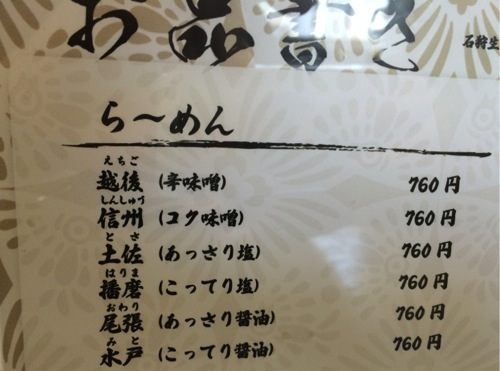 お品書き
石狩生
ら〜めん
えちご
越後 (辛味噌) 760円
しんしゅう
信州 (コク味噌) 760円
とさ
土佐 (あっさり塩) 760円
はりま
播磨 (こってり塩) 760円
おわり
尾張 (あっさり醤油) 760円
みと
水戸 (こってり醤油) 760円